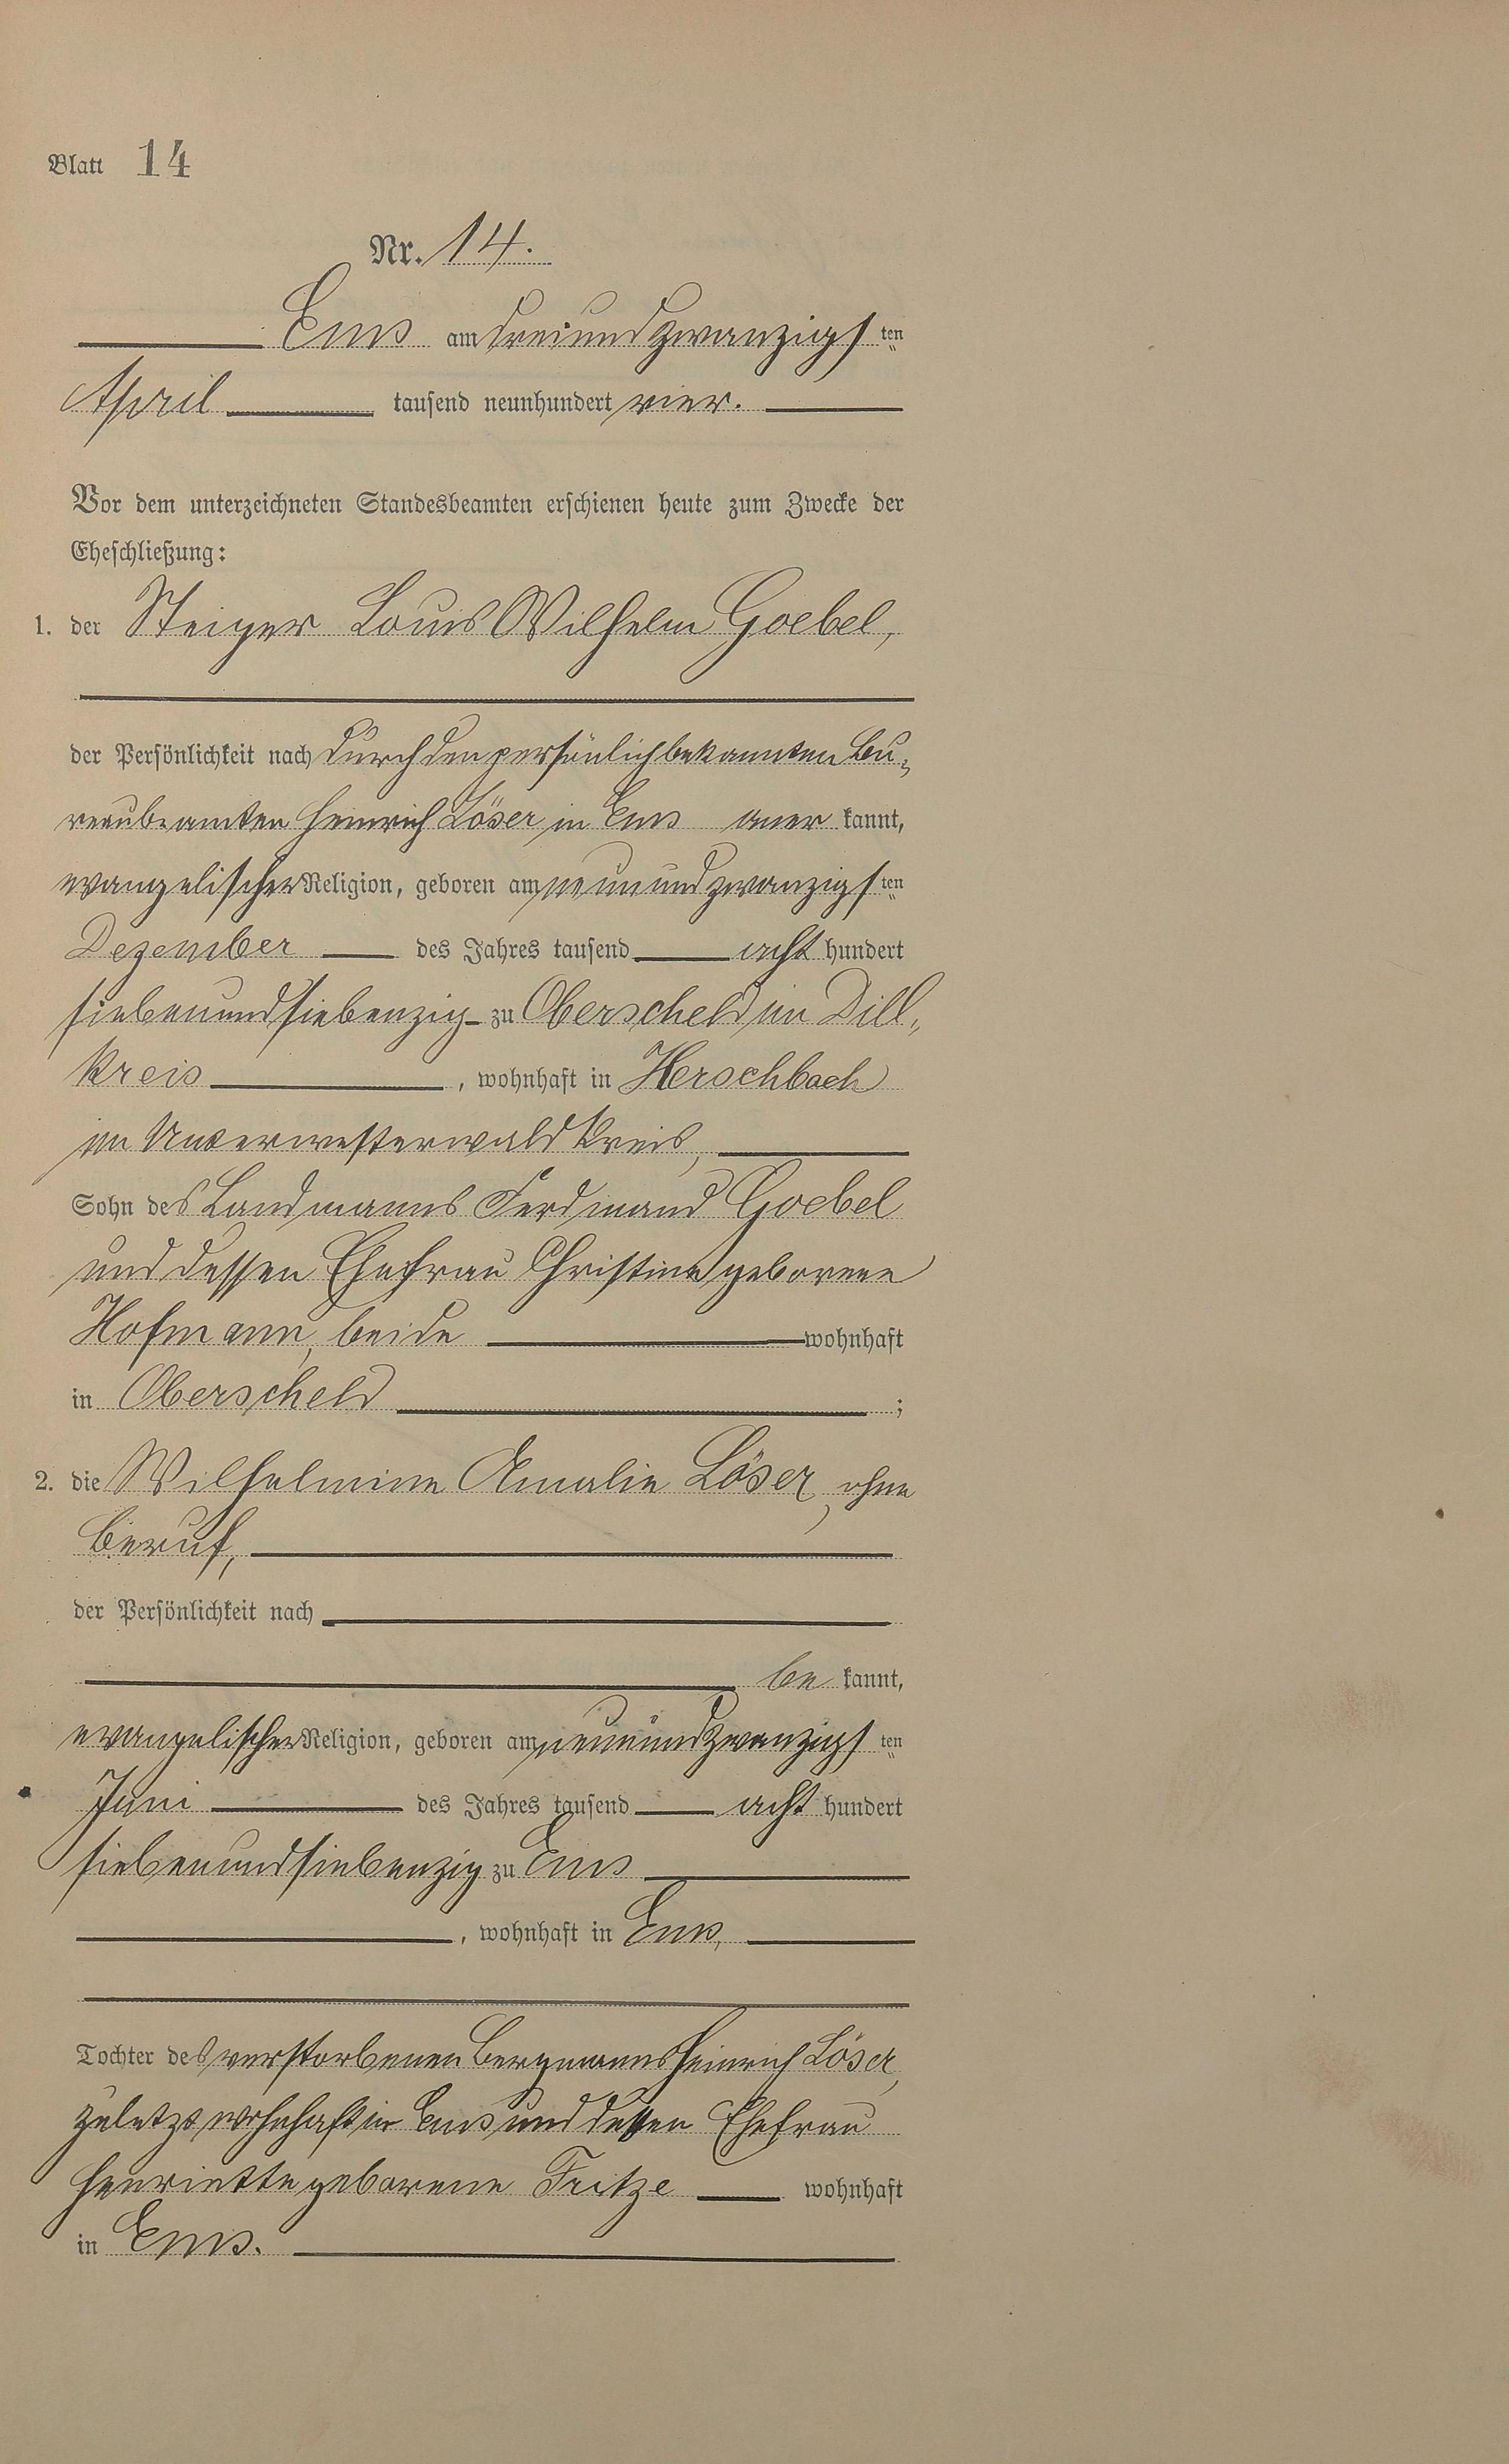 Blatt 14
Nr. 14.
Ems am dreiundzwanzigsten
April tausend neunhundert vier.
Vor dem unterzeichneten Standesbeamten erschienen heute zum Zwecke der
Eheschließung:
1. der Steiger Louis Wilhelm Goebel,
der Persönlichkeit nach durch den persönlich bekannten Bu-
reaubeamten Heinrich Löser in Ems aner kannt,
evangelischer Religion, geboren am neunundzwanzigsten
Dezember des Jahres tausend acht hundert
siebenundsiebenzig zu Oberscheld im Dill-
kreis, wohnhaft in Herschbach
im Unterwesterwaldkreis,
Sohn des Landmanns Ferdinand Goebel
und dessen Ehefrau Christine geborene
Hofmann, beide wohnhaft
in Oberscheld;
2. die Wilhelmine Amalie Löser, ohne
Beruf,
der Persönlichkeit nach
be kannt,
evangelischer Religion, geboren am neunundzwanzigsten
Juni des Jahres tausend acht hundert
siebenundsiebenzig zu Ems
, wohnhaft in Ems,
Tochter des verstorbenen Bergmanns Heinrich Löser,
zuletzt wohnhaft in Ems und dessen Ehefrau
Henriette geborene Fritze wohnhaft
in Ems.